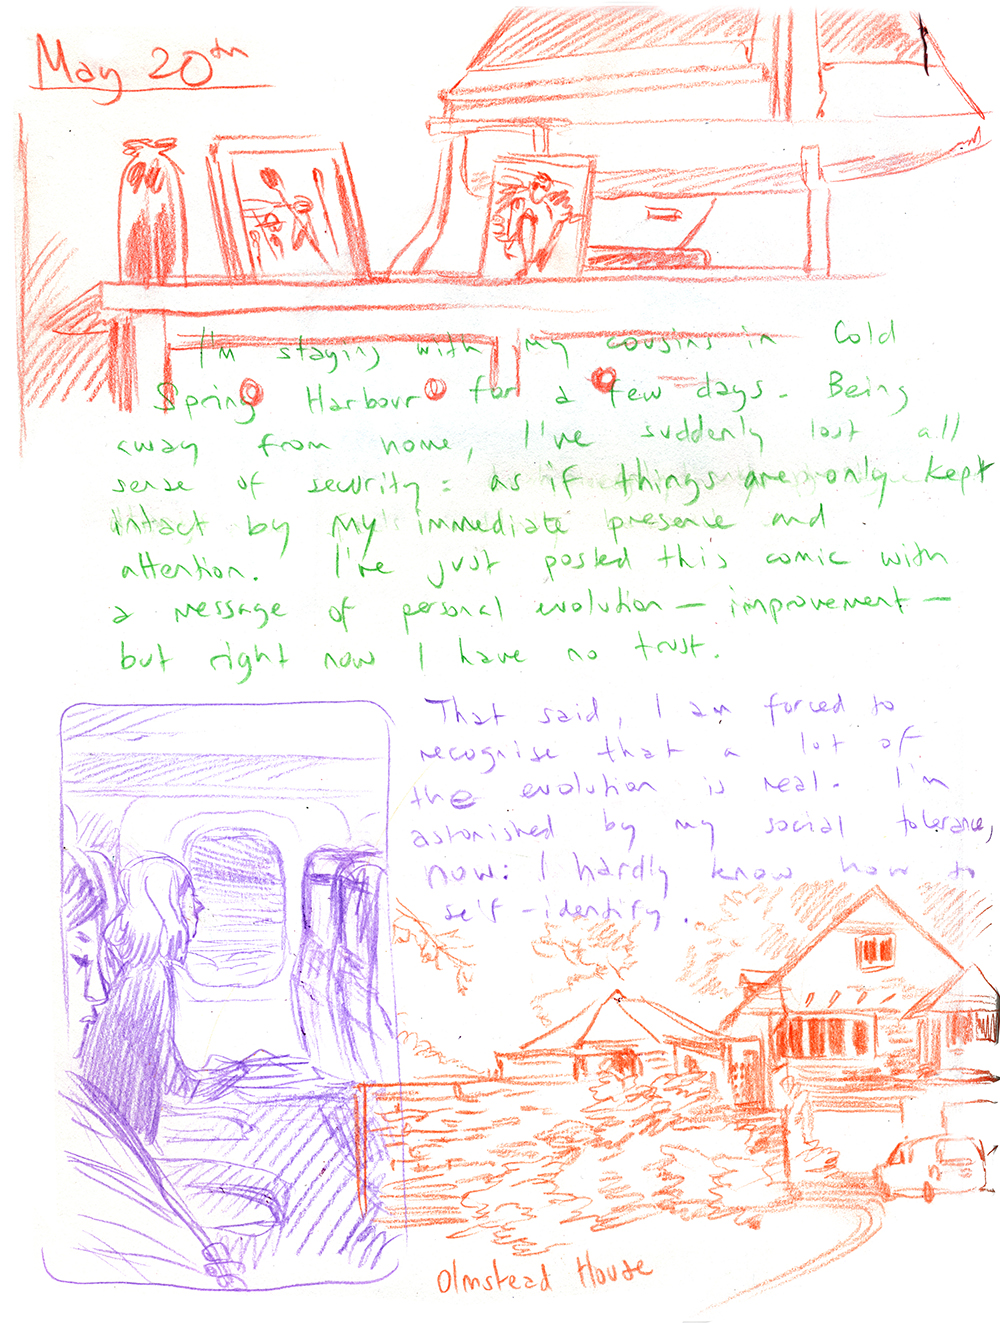 May 20th
I'm staying with my cousins in Cold
Spring Harbour for a few days. Being
away from home, I've suddenly lost all
sense of security: as if things are only kept
intact by my immediate presence and
attention. I've just posted this comic with
a message of personal evolution – improvement –
but right now I have no trust.
That said, I am forced to
recognise that a lot of
the evolution is real. I'm
astonished by my social tolerance,
now: I hardly know how to
self-identify.
Olmstead House